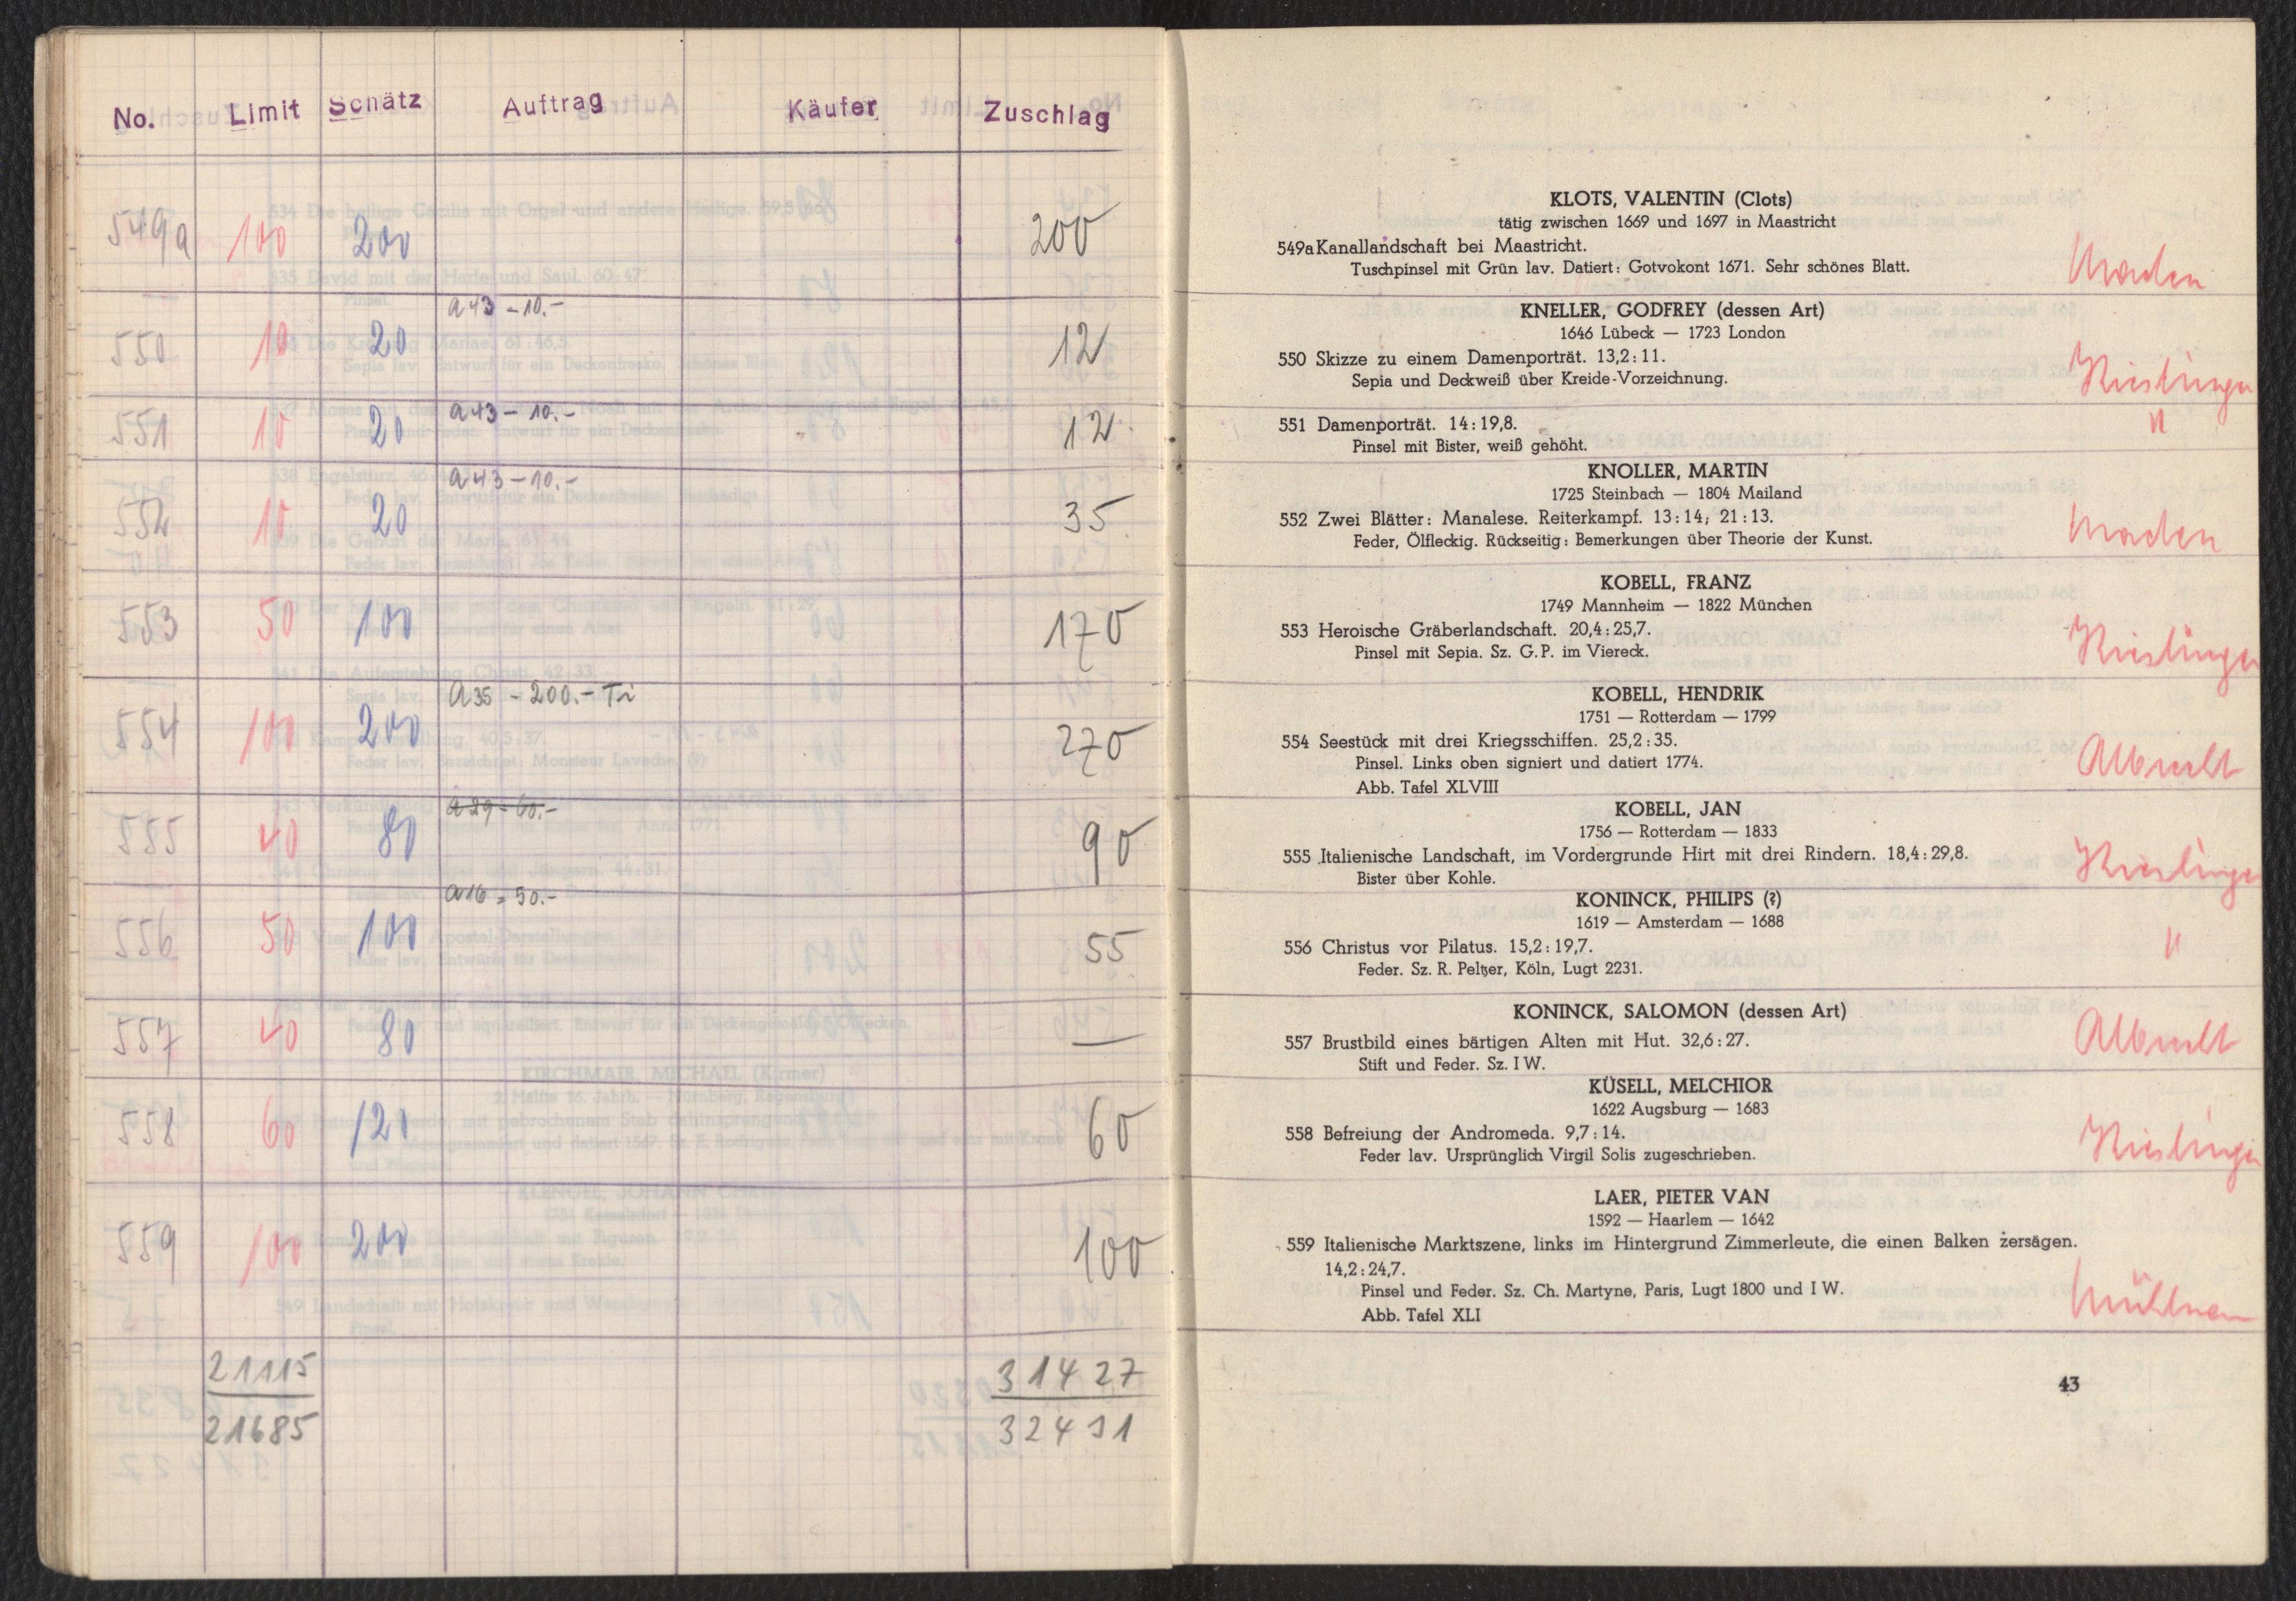 No. Limit Schätz Auftrag Käufer Zuschlag
549a 100 200 200
a43 - 10.-
550 10 20 12
a43 - 10.-
551 10 20 12
a43 - 10.-
552 10 20 35
553 50 100 170
a35 - 200.- Ti
554 100 200 270
a29 - 60.-
555 40 80 90
a16 - 50.-
556 50 100 55
557 40 80 —
558 60 120 60
559 100 200 100
21115 31427
21685 32431
KLOTS, VALENTIN (Clots)
tätig zwischen 1669 und 1697 in Maastricht
549a Kanallandschaft bei Maastricht.
Tuschpinsel mit Grün lav. Datiert: Gotvokont 1671. Sehr schönes Blatt.
KNELLER, GODFREY (dessen Art)
1646 Lübeck — 1723 London
550 Skizze zu einem Damenporträt. 13,2:11.
Sepia und Deckweiß über Kreide-Vorzeichnung.
Kieslinger
551 Damenporträt. 14:19,8.
"
Pinsel mit Bister, weiß gehöht.
KNOLLER, MARTIN
1725 Steinbach — 1804 Mailand
552 Zwei Blätter: Manalese. Reiterkampf. 13:14; 21:13.
Feder, Ölfleckig. Rückseitig: Bemerkungen über Theorie der Kunst.
KOBELL, FRANZ
1749 Mannheim — 1822 München
553 Heroische Gräberlandschaft. 20,4:25,7.
Pinsel mit Sepia. Sz. G.P. im Viereck.
Kieslinger
KOBELL, HENDRIK
1751 — Rotterdam — 1799
554 Seestück mit drei Kriegsschiffen. 25,2:35.
Pinsel. Links oben signiert und datiert 1774.
Albrecht
Abb. Tafel XLVIII
KOBELL, JAN
1756 — Rotterdam — 1833
555 Italienische Landschaft, im Vordergrunde Hirt mit drei Rindern. 18,4:29,8.
Bister über Kohle.
Kieslinger
KONINCK, PHILIPS (?)
1619 — Amsterdam — 1688
556 Christus vor Pilatus. 15,2:19,7.
"
Feder. Sz. R. Peltzer, Köln, Lugt 2231.
KONINCK, SALOMON (dessen Art)
557 Brustbild eines bärtigen Alten mit Hut. 32,6:27.
Albrecht
Stift und Feder. Sz. I W.
KÜSELL, MELCHIOR
1622 Augsburg — 1683
558 Befreiung der Andromeda. 9,7:14.
Kieslinger
Feder lav. Ursprünglich Virgil Solis zugeschrieben.
LAER, PIETER VAN
1592 — Haarlem — 1642
559 Italienische Marktszene, links im Hintergrund Zimmerleute, die einen Balken zersägen.
14,2:24,7.
Pinsel und Feder. Sz. Ch. Martyne, Paris, Lugt 1800 und I W.
Abb. Tafel XLI
43